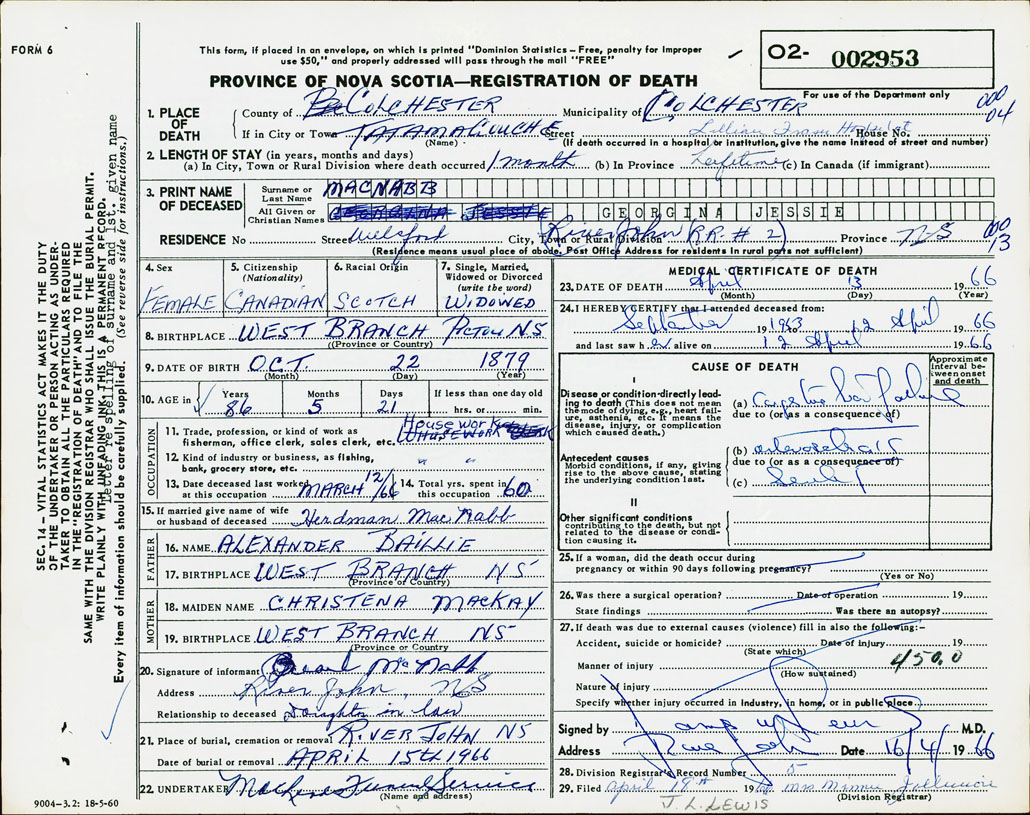 FORM 6
This form, if placed in an envelope, on which is printed "Dominion Statistics – Free, penalty for improper
use $50," and properly addressed will pass through the mail "FREE"
O2- 002953
For use of the Department only
PROVINCE OF NOVA SCOTIA—REGISTRATION OF DEATH
1. PLACE OF DEATH
County of COLCHESTER Municipality of COLCHESTER 000 04
If in City or Town TATAMAGOUCHE Street Lillian Fraser Hospital House No.
(Name) (If death occurred in a hospital or institution, give the name instead of street and number)
2. LENGTH OF STAY (in years, months and days)
(a) In City, Town or Rural Division where death occurred 1 month (b) In Province Lifetime (c) In Canada (if immigrant)
3. PRINT NAME OF DECEASED
Surname or Last Name MACNABB
All Given or Christian Names GEORGINA JESSIE GEORGINA JESSIE
RESIDENCE No Street Welsford City, Town or Rural Division River John (R.R. # 2) Province NS 000 13
(Residence means usual place of abode. Post Office Address for residents in rural parts not sufficient)
4. Sex FEMALE
5. Citizenship (Nationality) CANADIAN
6. Racial Origin SCOTCH
7. Single, Married, Widowed or Divorced (write the word) WIDOWED
8. BIRTHPLACE WEST BRANCH PICTOU NS
(Province or Country)
9. DATE OF BIRTH OCT. 22 1879
(Month) (Day) (Year)
10. AGE in Years 86 Months 5 Days 21 If less than one day old hrs. or min.
OCCUPATION
11. Trade, profession, or kind of work as fisherman, office clerk, sales clerk, etc. House work HOUSEWORK
12. Kind of industry or business, as fishing, bank, grocery store, etc. " "
13. Date deceased last worked at this occupation MARCH 12/66
14. Total yrs. spent in this occupation 60
15. If married give name of wife or husband of deceased Herdman MacNabb
FATHER
16. NAME ALEXANDER BAILLIE
17. BIRTHPLACE WEST BRANCH NS
(Province or Country)
MOTHER
18. MAIDEN NAME CHRISTENA MACKAY
19. BIRTHPLACE WEST BRANCH NS
(Province or Country
20. Signature of informant McNabb
Address River John, NS
Relationship to deceased Daughter in law
21. Place of burial, cremation or removal RIVER JOHN NS
Date of burial or removal APRIL 15TH 1966
22 UNDERTAKER Funeral Service
(Name and address)
9004-3.2: 18-5-60
MEDICAL CERTIFICATE OF DEATH
23. DATE OF DEATH April 13 1966
(Month) (Day) (Year)
24. I HEREBY CERTIFY that I attended deceased from:
September 1963 12 April 1966
and last saw her alive on 12 April 1966
CAUSE OF DEATH
Approximate interval between onset and death
I
Disease or condition directly leading to death (This does not mean the mode of dying, e.g., heart failure, asthenia, etc. It means the disease, injury, or complication which caused death.)
(a) Congestive heart failure
due to (or as a consequence of)
Antecedent causes
Morbid conditions, if any, giving rise to the above cause, stating the underlying condition last.
(b)
due to (or as a consequence of)
(c)
II
Other significant conditions
contributing to the death, but not related to the disease or condition causing it.
25. If a woman, did the death occur during
pregnancy or within 90 days following pregnancy?
(Yes or No)
26. Was there a surgical operation? Date of operation 19
State findings Was there an autopsy?
27. If death was due to external causes (violence) fill in also the following:–
Accident, suicide or homicide? Date of injury 19
(State which)
Manner of injury 450.0
(How sustained)
Nature of injury
Specify whether injury occurred in industry, in home, or in public place.
Signed by M.D.
Address River John Date 16/4/ 1966
28. Division Registrar's Record Number 5
29. Filed April 19th 1966 Mrs
(Division Registrar)
J. L. LEWIS
SEC. 14 – VITAL STATISTICS ACT MAKES IT THE DUTY
OF THE UNDERTAKER OR PERSON ACTING AS UNDER-
TAKER TO OBTAIN ALL THE PARTICULARS REQUIRED
IN THE "REGISTRATION OF DEATH" AND TO FILE THE
SAME WITH THE DIVISION REGISTRAR WHO SHALL ISSUE THE BURIAL PERMIT.
WRITE PLAINLY WITH UNFADING INK. THIS IS A PERMANENT RECORD.
Letter re spelling of surname and 1st. given name
Every item of information should be carefully supplied. (See reverse side for instructions.)